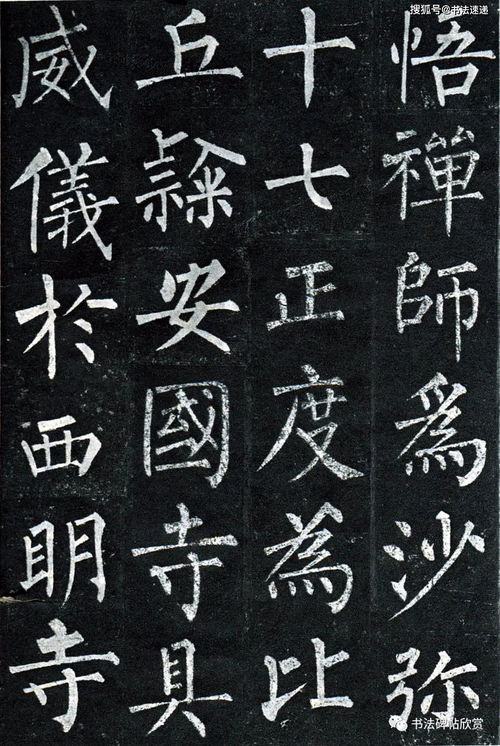 搜狐号@书法速递
悟禪師爲沙弥
十七正度為比
丘𥘶安國寺具
威儀於西明寺
书法碑帖欣赏